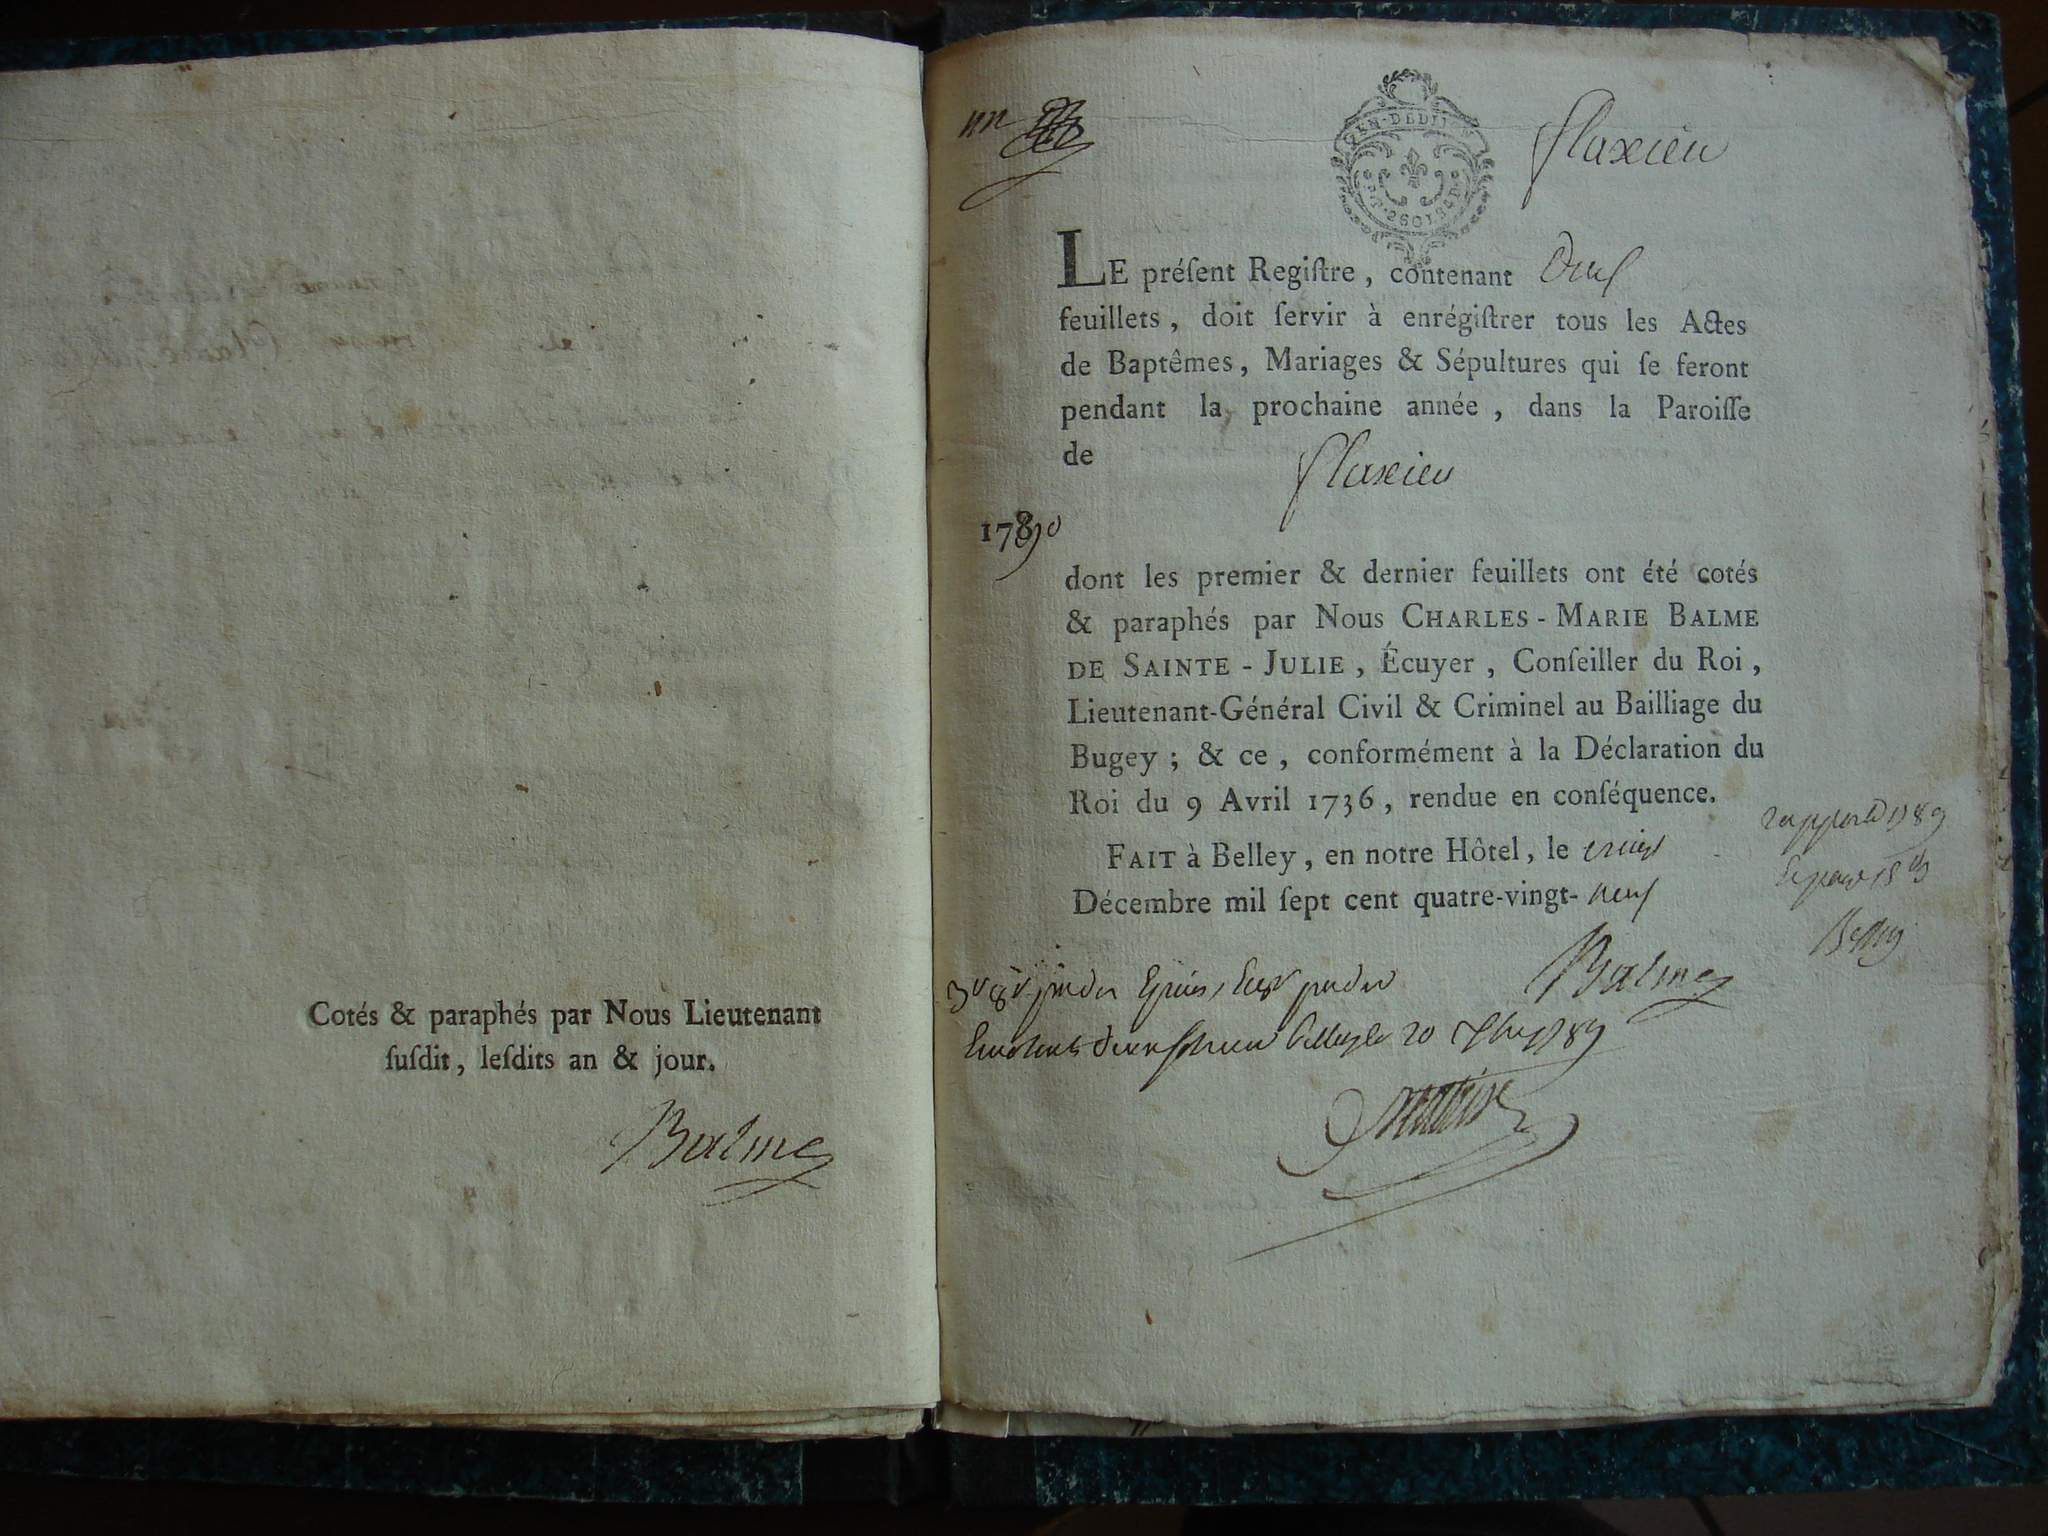 Cotés & paraphés par Nous Lieutenant
ſuſdit, leſdits an & jour.
Balme
GEN-DEDIJON
flaxieu
LE préſent Regiſtre, contenant
feuillets, doit ſervir à enrégiſtrer tous les Actes
de Baptêmes, Mariages & Sépultures qui ſe feront
pendant la prochaine année, dans la Paroiſſe
de
flaxieu
1790
dont les premier & dernier feuillets ont été cotés
& paraphés par Nous CHARLES-MARIE BALME
DE SAINTE-JULIE, Écuyer, Conſeiller du Roi,
Lieutenant-Général Civil & Criminel au Bailliage du
Bugey; & ce, conformément à la Déclaration du
Roi du 9 Avril 1736, rendue en conſéquence.
FAIT à Belley, en notre Hôtel, le
Décembre mil ſept cent quatre-vingt-neuf
Balme
20 1789